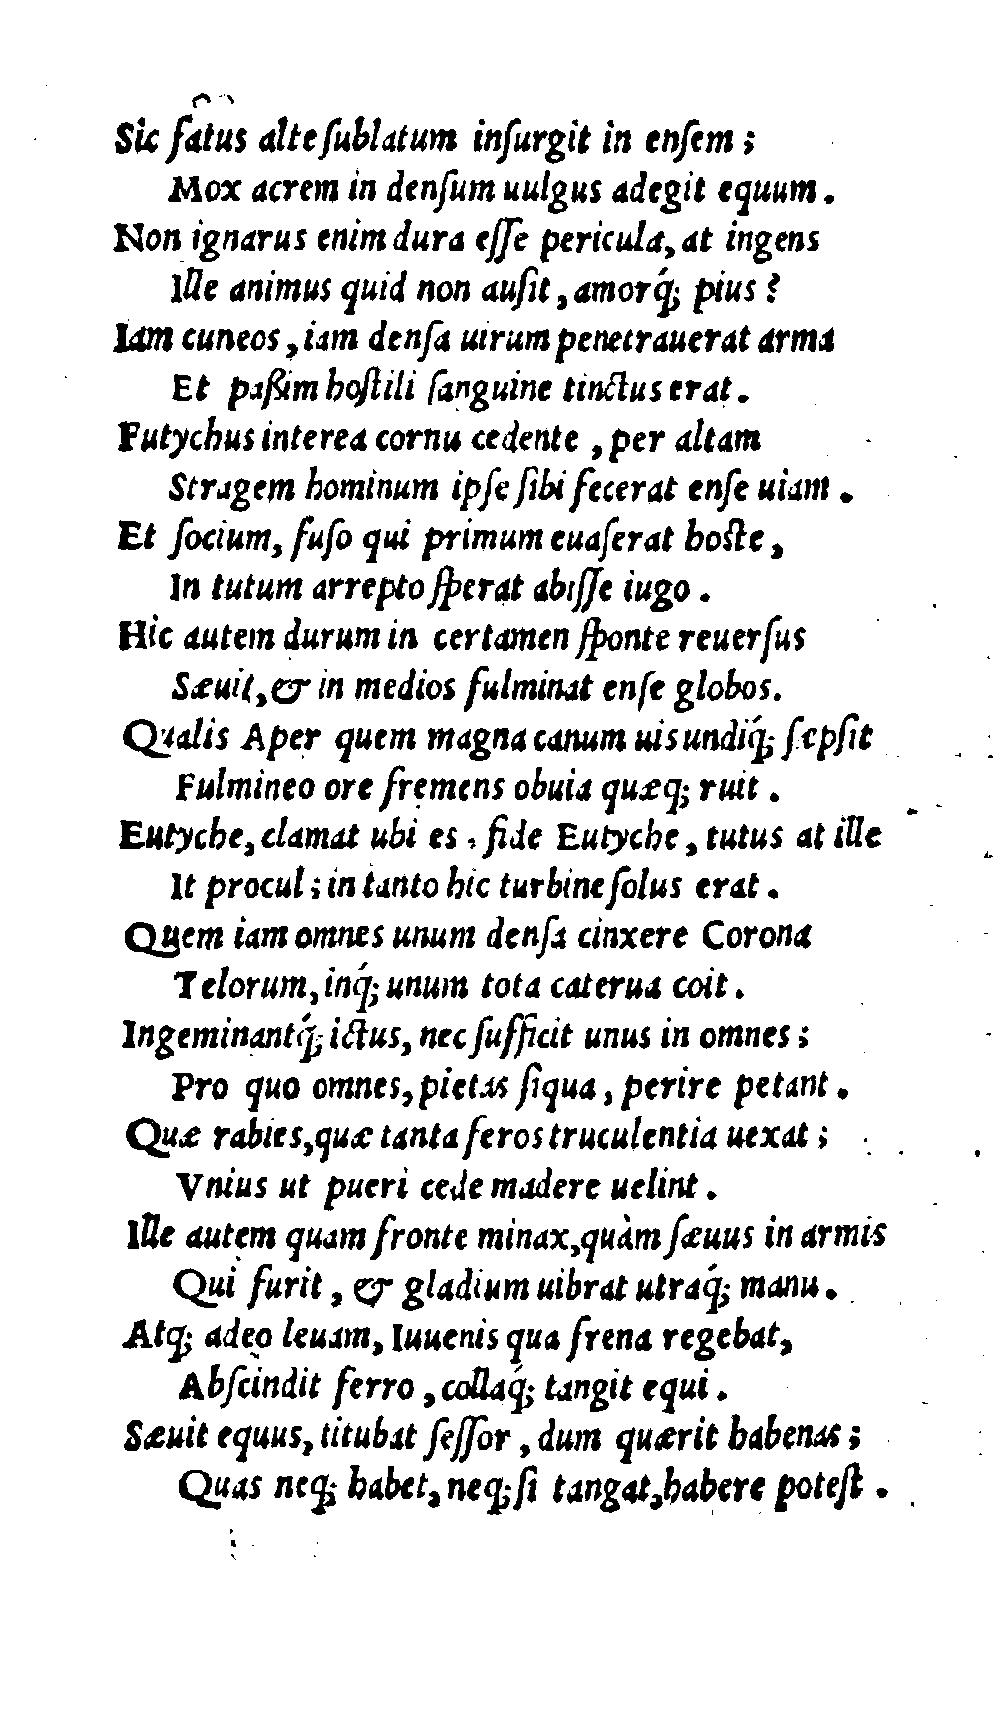 Sic fatus alte ſublatum inſurgit in enſem ;
Mox acrem in denſum uulgus adegit equum .
Non ignarus enim dura eſſe pericula, at ingens
Ille animus quid non auſit , amorq́; pius ?
Iam cuneos , iam denſa uirum penetrauerat arma
Et paßim hoſtili ſanguine tinctus erat .
Eutychus interea cornu cedente , per altam
Stragem hominum ipſe ſibi fecerat enſe uiam .
Et ſocium, fuſo qui primum euaſerat hoſte ,
In tutum arrepto ſperat abiſſe iugo .
Hic autem durum in certamen ſponte reuerſus
Sæuit, & in medios fulminat enſe globos.
Qualis Aper quem magna canum uis undiq́; ſepſit
Fulmineo ore fremens obuia quæq; ruit .
Eutyche, clamat ubi es , fide Eutyche , tutus at ille
It procul ; in tanto hic turbine ſolus erat .
Quem iam omnes unum denſa cinxere Corona
Telorum, inq́; unum tota caterua coit .
Ingeminantq́; ictus, nec ſufficit unus in omnes ;
Pro quo omnes, pietas ſiqua , perire petant .
Quæ rabies, quæ tanta feros truculentia uexat ;
Vnius ut pueri cede madere uelint .
Ille autem quam fronte minax, quàm ſæuus in armis
Qui furit , & gladium uibrat utraq́; manu .
Atq; adeo leuam, Iuuenis qua frena regebat,
Abſcindit ferro , collaq́; tangit equi .
Sæuit equus, titubat ſeſſor , dum quærit habenas ;
Quas neq; habet, neq; ſi tangat, habere poteſt .